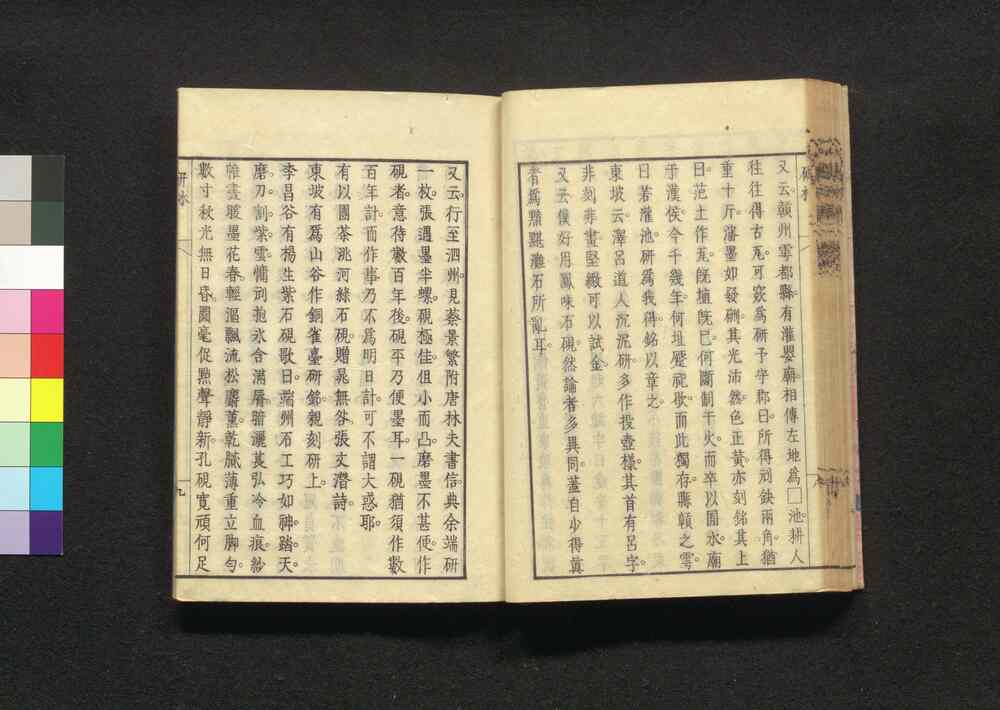 又云贛州雩都縣有灌嬰廟相傳左地爲□池耕人
往往得古瓦可窾爲研予守郡日所得刓缺兩角猶
重十斤瀋墨如發硎其光沛然色正黃亦刻銘其上
曰范土作瓦旣埴旣已何斷制于火而卒以囿水廟
于漢侯今千幾年何址歷祀歇而此獨存縣贛之雩
曰若灌池研爲我得銘以章之
東坡云澤呂道人沉泥研多作投壺樣其首有呂字
非刻非畫堅緻可以試金
又云僕好用鳳味石硯然論者多異同蓋自少得眞
者爲黯黮灘石所亂耳
又云行至泗州見蔡景繁附唐林夫書信典余端研
一枚張遇墨半螺硯極佳但小而凸磨墨不甚便作
硯者意待數百年後硯平乃便墨耳一硯猶須作數
百年計而作事乃不爲明日計可不謂大惑耶
有以團茶洮河綠石硯贈晁無咎張文潛詩
東坡有爲山谷作銅雀臺研銘親刻研上
李昌谷有楊生紫石硯歌曰端州石工巧如神踏天
磨刀割紫雲傭刓抱水含滿唇暗灑萇弘冷血痕紛
帷晝暖墨花春輕漚飄流松麝薰乾膩薄重立脚勻
數寸秋光無日昏圓毫促點聲靜新孔硯寬頑何足
研水
九